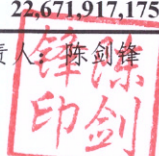 22,671,917,175
责人：陈剑锋
陈剑
锋印